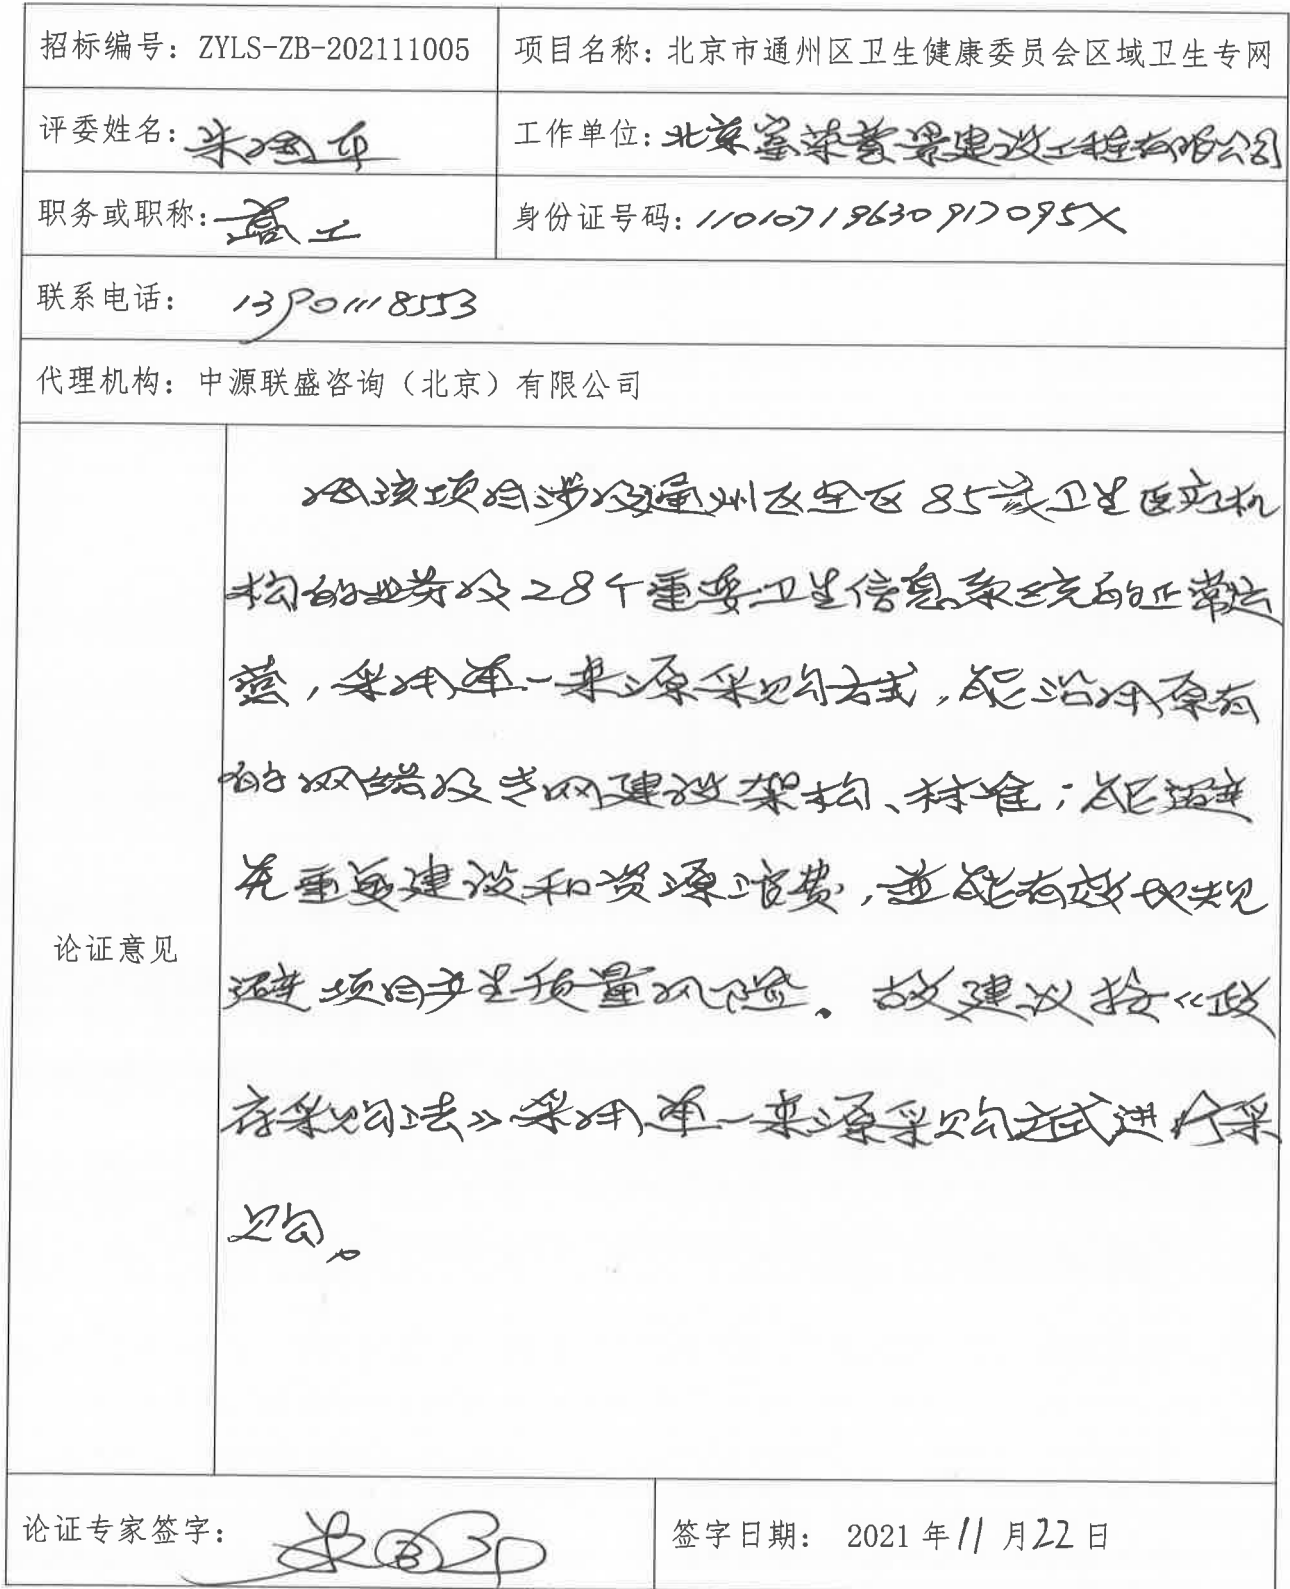 招标编号：ZYLS-ZB-202111005
项目名称：北京市通州区卫生健康委员会区域卫生专网
评委姓名：
工作单位：北京 景建设工程有限公司
职务或职称：高工
身份证号码：11010719630917095X
联系电话：13901118553
代理机构：中源联盛咨询（北京）有限公司
论证意见
因该项目涉及通州区全区85家卫生医疗机
构的业务及28个重要卫生信息系统的正常运
营，采用单一来源采购方式，能沿用原有
的网络及专网建设架构、标准；能避
免重复建设和资源浪费，并能有效地规
避项目产生质量风险。故建议按《政
府采购法》采用单一来源采购方式进行采
购。
论证专家签字：
签字日期： 2021年11月22日